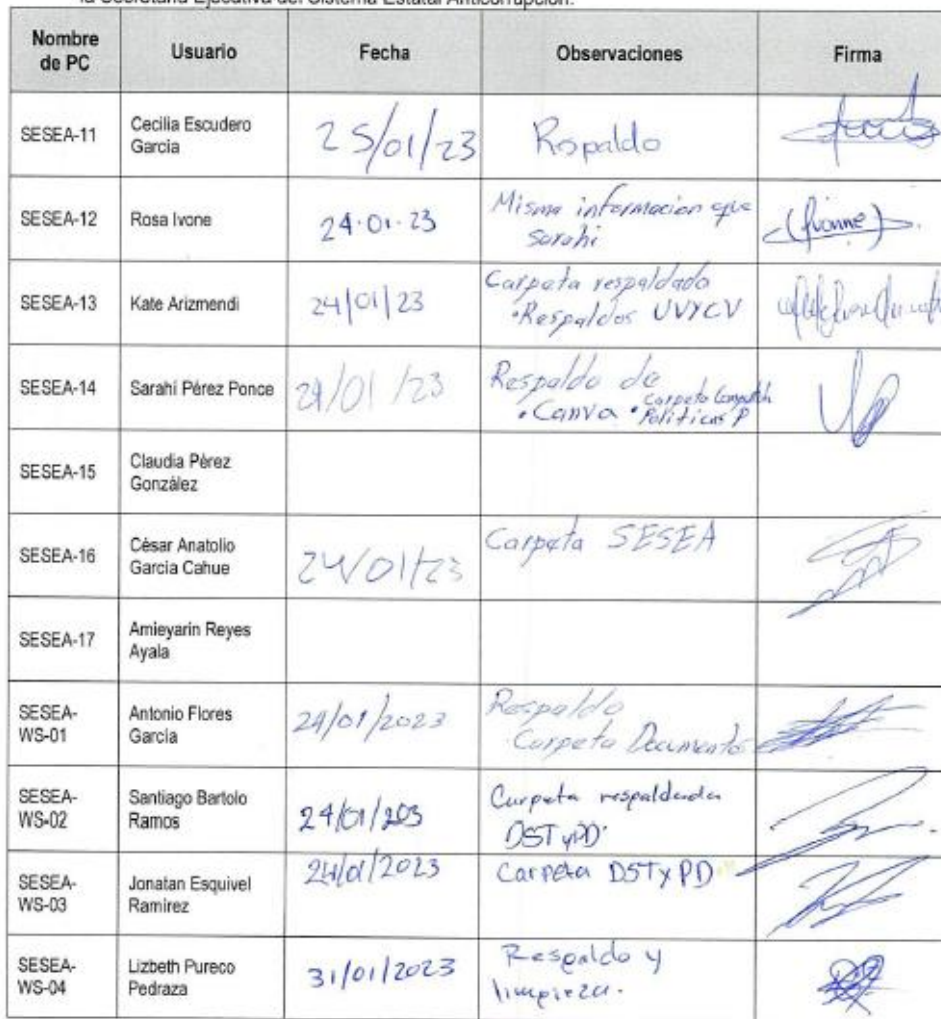 la Secretaría Ejecutiva del Sistema Estatal Anticorrupción.
Nombre de PC Usuario Fecha Observaciones Firma
SESEA-11 Cecilia Escudero García 25/01/23 Rspaldo
SESEA-12 Rosa Ivone 24.01.23 Misma informacion que Sarahi (Ivonne)
SESEA-13 Kate Arizmendi 24/01/23 Carpeta respaldado
•Respaldos UVYCV
SESEA-14 Sarahi Pérez Ponce 24/01/23 Respaldo de
•Canva •Carpeta
Políticas P
SESEA-15 Claudia Pérez González
SESEA-16 César Anatolio García Cahue 24/01/23 Carpeta SESEA
SESEA-17 Amieyarin Reyes Ayala
SESEA-WS-01 Antonio Flores García 24/01/2023 Respaldo
Carpeta Documentos
SESEA-WS-02 Santiago Bartolo Ramos 24/01/203 Carpeta respaldada
DSTyPD
SESEA-WS-03 Jonatan Esquivel Ramírez 24/01/2023 Carpeta DSTyPD
SESEA-WS-04 Lizbeth Pureco Pedraza 31/01/2023 Respaldo y
limpieza.